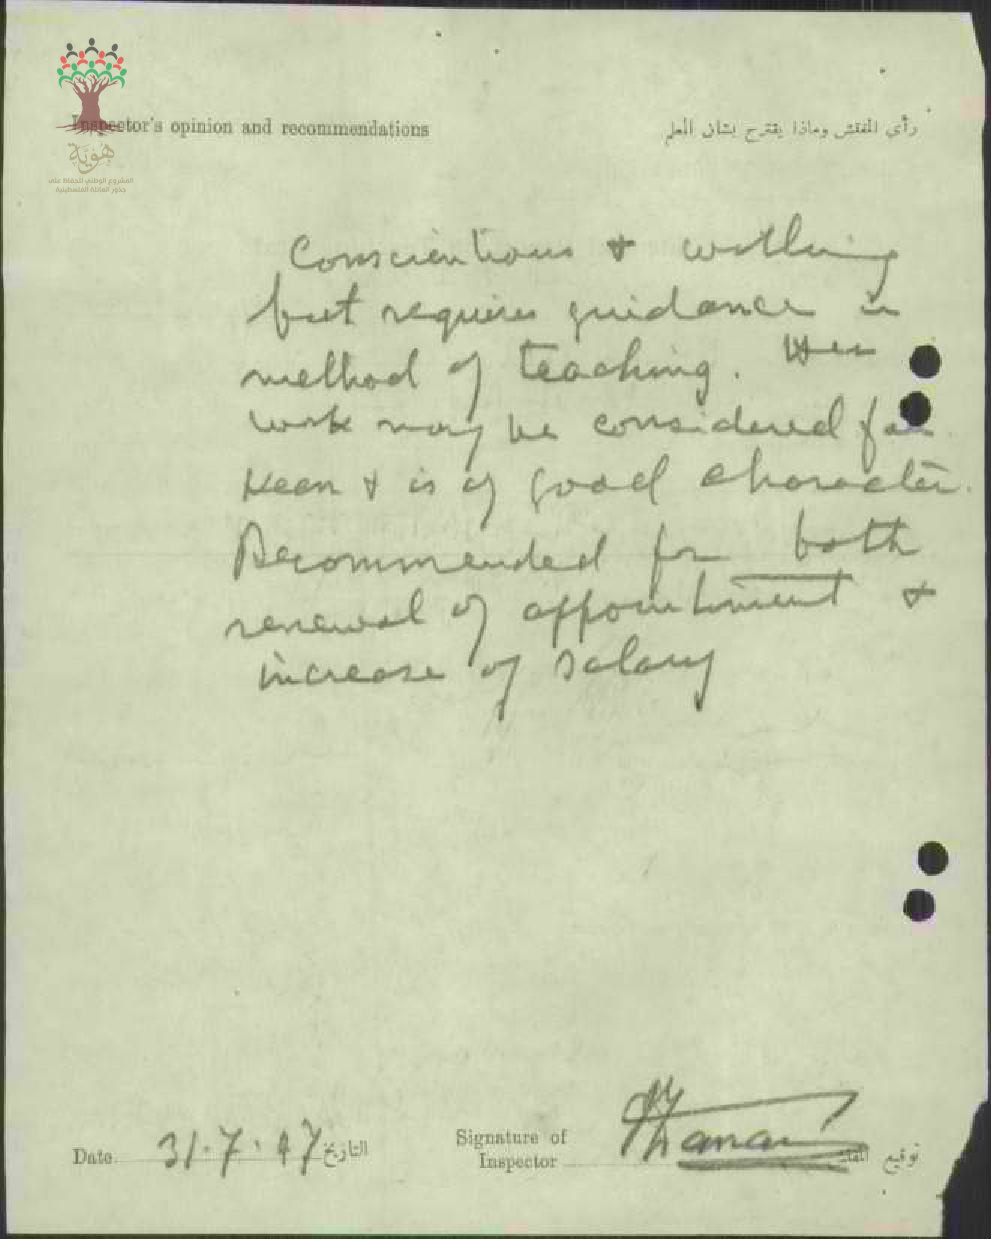 هوية
المشروع الوطني للحفاظ على
جذور العائلة الفلسطينية
Inspector's opinion and recommendations
رأي المفتش وماذا يقترح بشان المعلم
Conscientious & willing
but requires guidance in
method of teaching. His
work may be considered fair
Keen & is of good character.
Recommended for both
renewal of appointment &
increase of salary
Date 31.7.47 التاريخ
Signature of
Inspector
توقيع المفتش